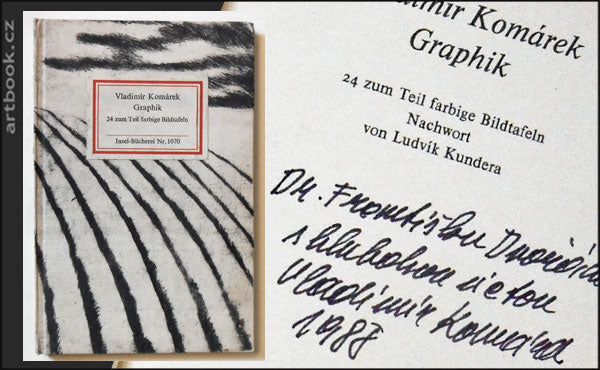 artbook.cz
Vladimír Komárek
Graphik
24 zum Teil farbige Bildtafeln
Insel-Bücherei Nr. 1070
Vladimír Komárek
Graphik
24 zum Teil farbige Bildtafeln
Nachwort
von Ludvík Kundera
Dr. Františku
s hlubokou úctou
Vladimír Komárek
1988